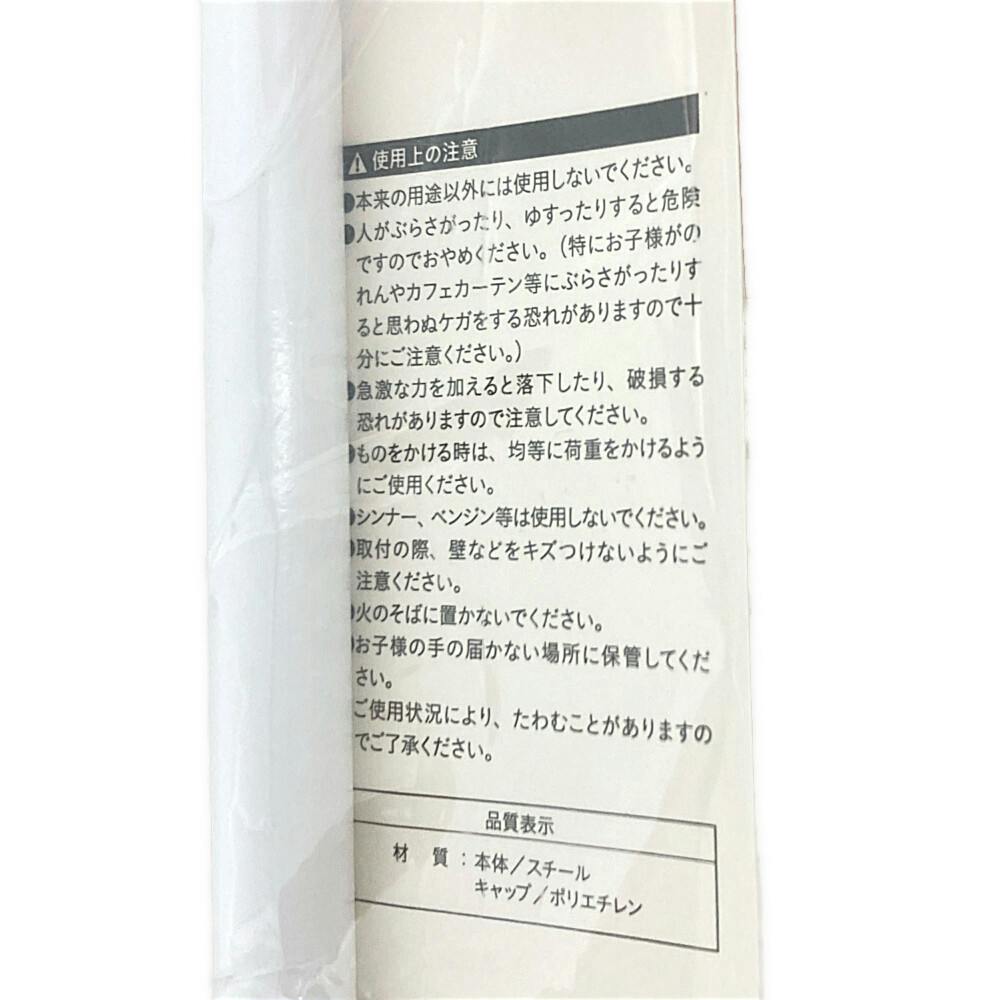 ⚠ 使用上の注意
●本来の用途以外には使用しないでください。
●人がぶらさがったり、ゆすったりすると危険
ですのでおやめください。(特にお子様がの
れんやカフェカーテン等にぶらさがったりす
ると思わぬケガをする恐れがありますので十
分にご注意ください。)
●急激な力を加えると落下したり、破損する
恐れがありますので注意してください。
●ものをかける時は、均等に荷重をかけるよう
にご使用ください。
●シンナー、ベンジン等は使用しないでください。
●取付の際、壁などをキズつけないようにご
注意ください。
●火のそばに置かないでください。
●お子様の手の届かない場所に保管してくだ
さい。
ご使用状況により、たわむことがありますの
でご了承ください。
品質表示
材 質:本体/スチール
キャップ/ポリエチレン